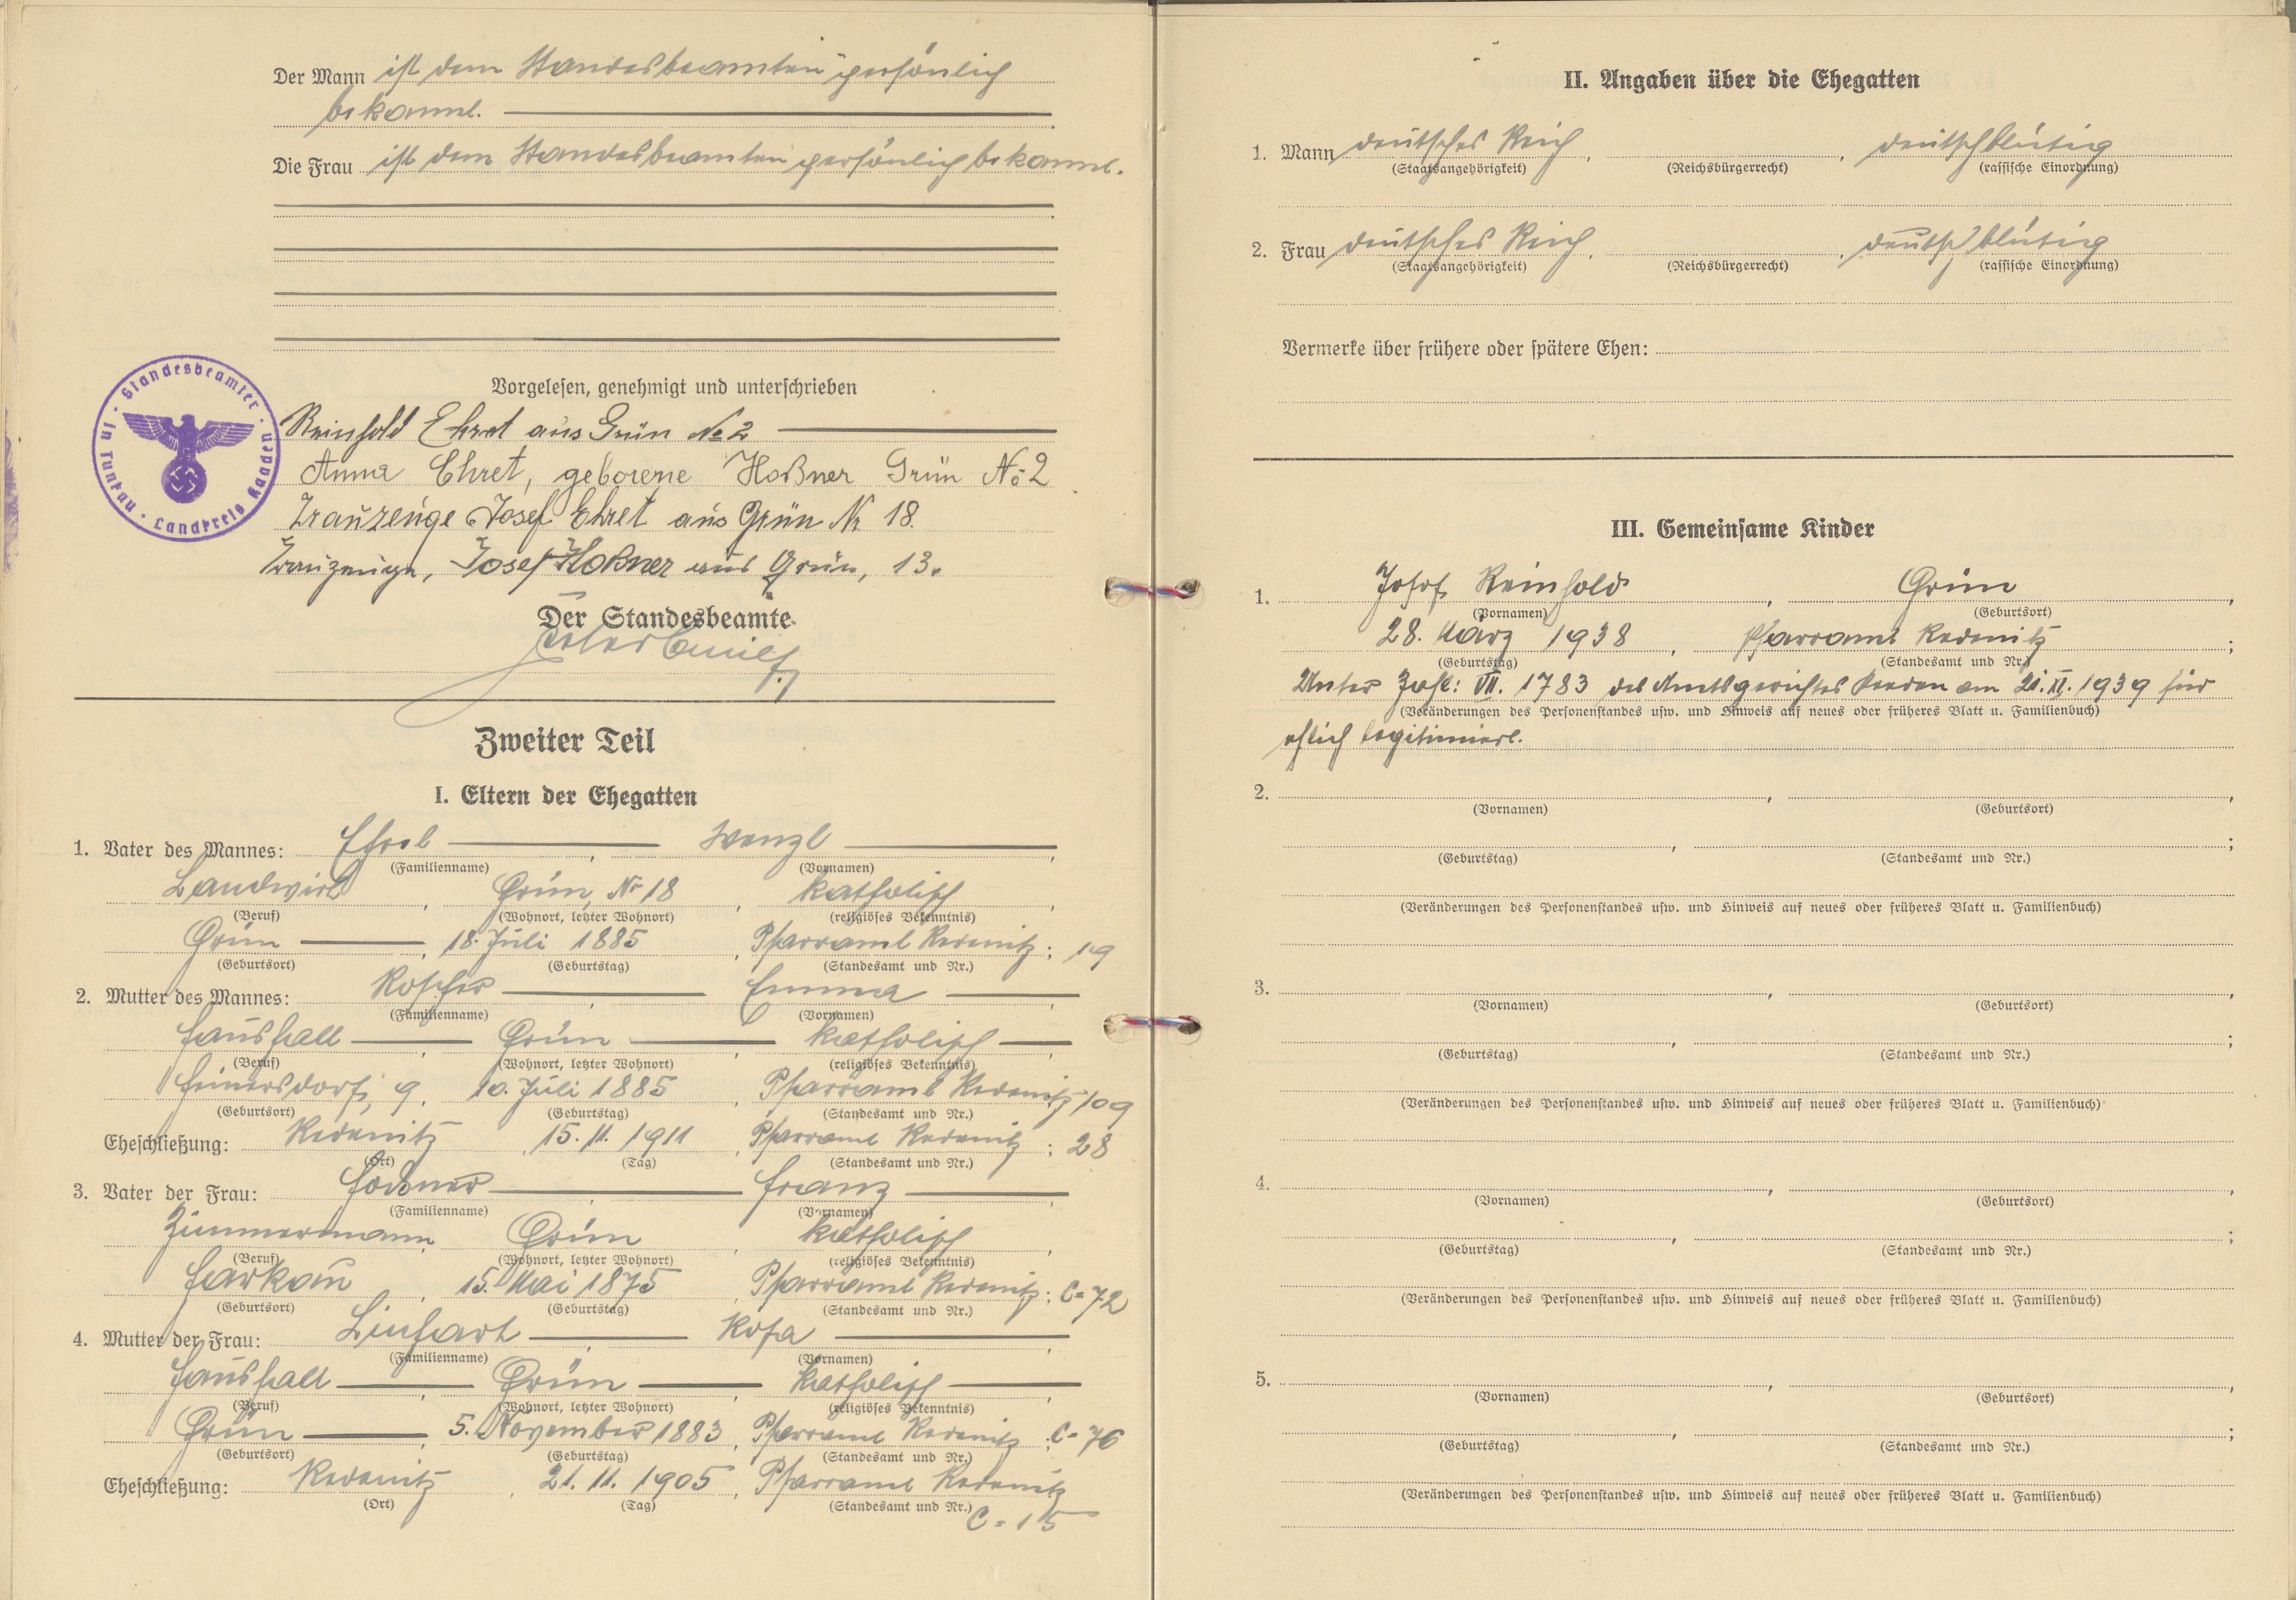 Der Mann ist dem Standesbeamten persönlich
bekannt.
Die Frau ist dem Standesbeamten persönlich bekannt.
Vorgelesen, genehmigt und unterschrieben
Standesbeamter · in Tunkau · Landkreis Kaaden
Reinhold Ehret aus Grün № 2
Anna Ehret, geborene Hoßner Grün No 2
Trauzeuge Josef Ehret aus Grün Nr 18.
Trauzeuge, Josef Hoßner aus Grün, 13.
Der Standesbeamte
Zweiter Teil
I. Eltern der Ehegatten
1. Vater des Mannes: Ehret, Wenzl,
(Familienname) (Vornamen)
Landwirt, Grün, Nr 18, katholisch,
(Beruf) (Wohnort, letzter Wohnort) (religiöses Bekenntnis)
Grün, 18. Juli 1885, Pfarramt Redenitz; 19
(Geburtsort) (Geburtstag) (Standesamt und Nr.)
2. Mutter des Mannes: Roscher, Emma,
(Familienname) (Vornamen)
Haushalt, Grün, katholisch,
(Beruf) (Wohnort, letzter Wohnort) (religiöses Bekenntnis)
9, 10. Juli 1885, Pfarramt Redenitz; 109
(Geburtsort) (Geburtstag) (Standesamt und Nr.)
Eheschließung: Redenitz, 15. 11. 1911, Pfarramt Redenitz; 28
(Ort) (Tag) (Standesamt und Nr.)
3. Vater der Frau: Hoßner, Franz,
(Familienname) (Vornamen)
Zimmermann, Grün, katholisch,
(Beruf) (Wohnort, letzter Wohnort) (religiöses Bekenntnis)
15. Mai 1875, Pfarramt Redenitz; C=72
(Geburtsort) (Geburtstag) (Standesamt und Nr.)
4. Mutter der Frau: Linhart, Rosa,
(Familienname) (Vornamen)
Haushalt, Grün, katholisch,
(Beruf) (Wohnort, letzter Wohnort) (religiöses Bekenntnis)
Grün, 5. November 1883, Pfarramt Redenitz; C=76
(Geburtsort) (Geburtstag) (Standesamt und Nr.)
Eheschließung: Redenitz, 21. 11. 1905, Pfarramt Redenitz
(Ort) (Tag) (Standesamt und Nr.)
C=15
II. Angaben über die Ehegatten
1. Mann deutsches Reich, , deutschblütig
(Staatsangehörigkeit) (Reichsbürgerrecht) (rassische Einordnung)
2. Frau deutsches Reich, , deutschblütig
(Staatsangehörigkeit) (Reichsbürgerrecht) (rassische Einordnung)
Vermerke über frühere oder spätere Ehen:
III. Gemeinsame Kinder
1. Josef Reinhold, Grün,
(Vornamen) (Geburtsort)
28. März 1938, Pfarramt Redenitz;
(Geburtstag) (Standesamt und Nr.)
Unter Zahl: VII. 1783 des Amtsgerichtes Kaaden am 21. XI. 1939 für
(Veränderungen des Personenstandes usw. und Hinweis auf neues oder früheres Blatt u. Familienbuch)
ehlich legitimiert.
2. , ,
(Vornamen) (Geburtsort)
, ;
(Geburtstag) (Standesamt und Nr.)
(Veränderungen des Personenstandes usw. und Hinweis auf neues oder früheres Blatt u. Familienbuch)
3. , ,
(Vornamen) (Geburtsort)
, ;
(Geburtstag) (Standesamt und Nr.)
(Veränderungen des Personenstandes usw. und Hinweis auf neues oder früheres Blatt u. Familienbuch)
4. , ,
(Vornamen) (Geburtsort)
, ;
(Geburtstag) (Standesamt und Nr.)
(Veränderungen des Personenstandes usw. und Hinweis auf neues oder früheres Blatt u. Familienbuch)
5. , ,
(Vornamen) (Geburtsort)
, ;
(Geburtstag) (Standesamt und Nr.)
(Veränderungen des Personenstandes usw. und Hinweis auf neues oder früheres Blatt u. Familienbuch)